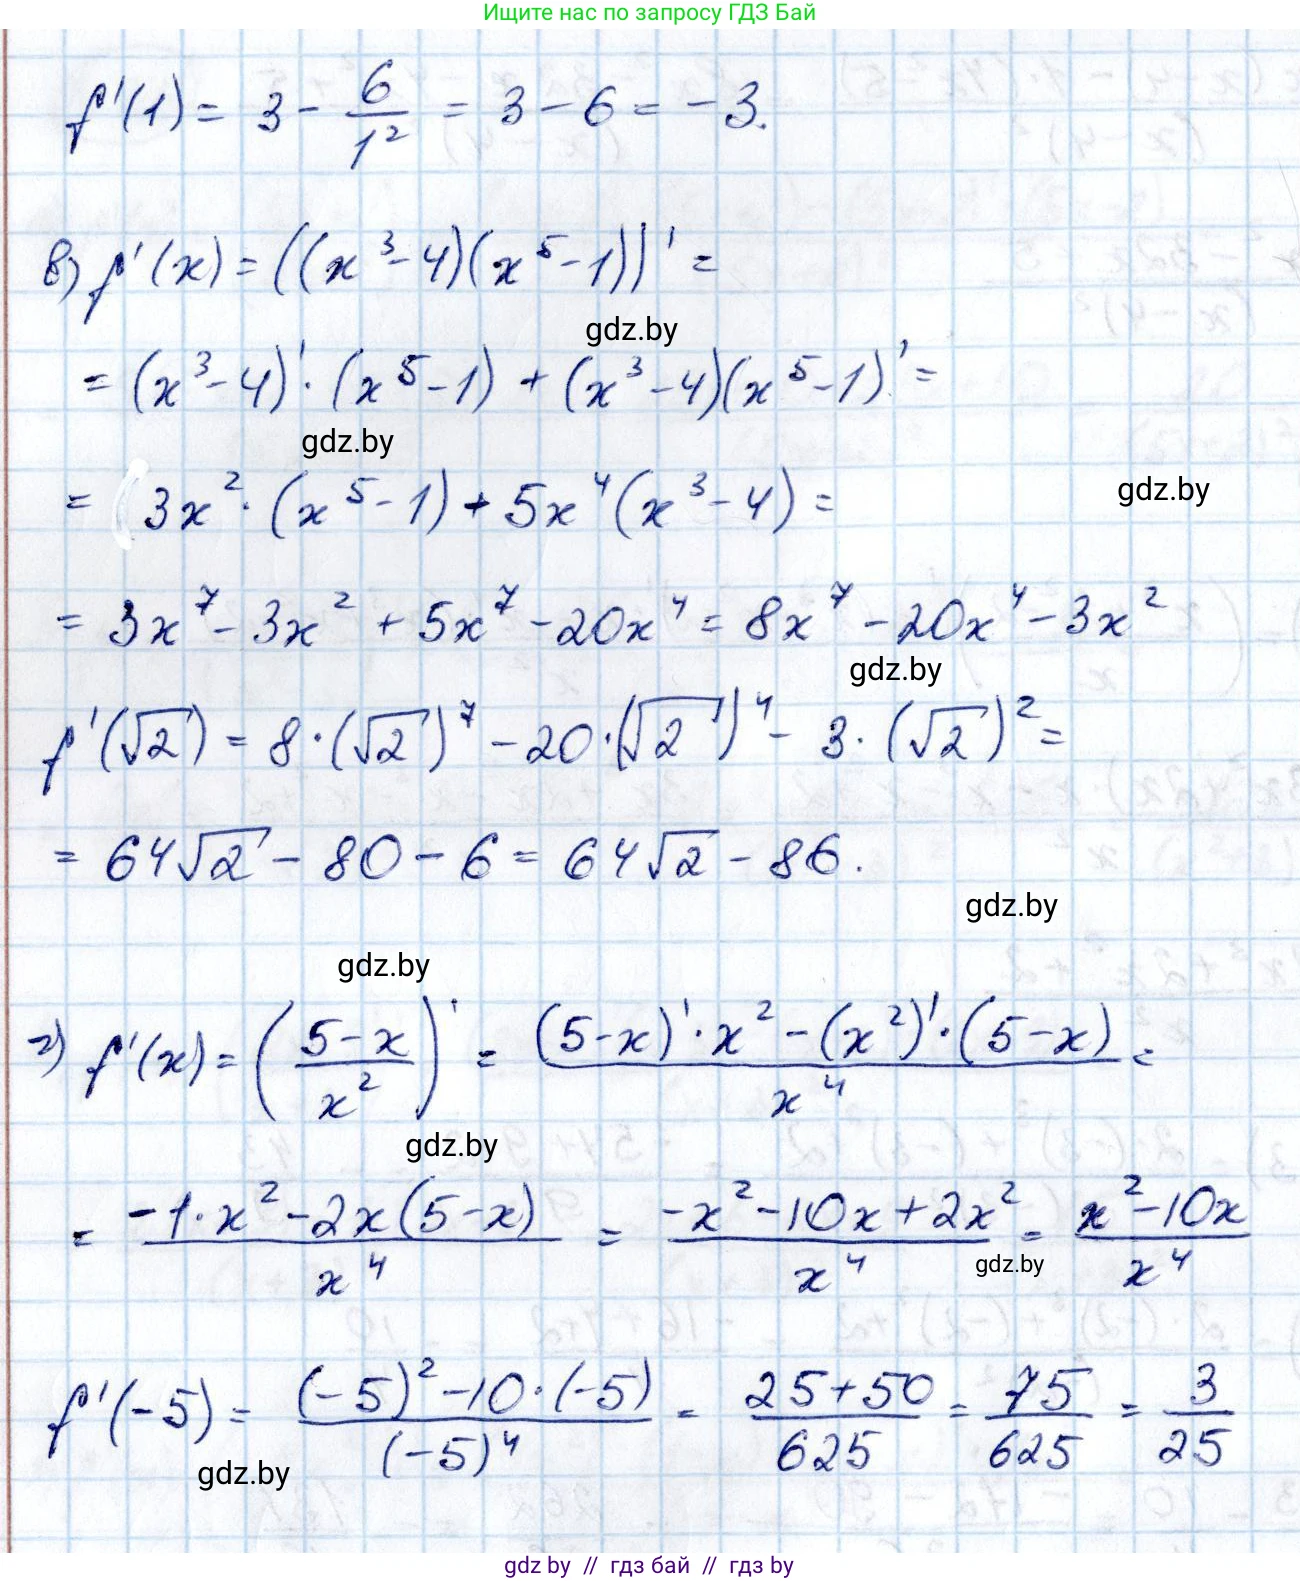 Ищите нас по запросу ГДЗ Бай
f'(1) = 3 - 6/1² = 3 - 6 = -3.
в) f'(x) = ((x³-4)(x⁵-1))' =
gdz.by
= (x³-4)'·(x⁵-1) + (x³-4)(x⁵-1)' =
gdz.by
= 3x²·(x⁵-1) + 5x⁴(x³-4) =
gdz.by
= 3x⁷ - 3x² + 5x⁷ - 20x⁴ = 8x⁷ - 20x⁴ - 3x²
gdz.by
f'(√2) = 8·(√2)⁷ - 20·(√2)⁴ - 3·(√2)² =
= 64√2 - 80 - 6 = 64√2 - 86.
gdz.by
gdz.by
г) f'(x) = ((5-x)/x²)' = ((5-x)'·x² - (x²)'·(5-x))/x⁴ =
gdz.by
= (-1·x² - 2x(5-x))/x⁴ = (-x² - 10x + 2x²)/x⁴ = (x² - 10x)/x⁴
gdz.by
f'(-5) = ((-5)² - 10·(-5))/(-5)⁴ = (25+50)/625 = 75/625 = 3/25
gdz.by
gdz.by // гдз бай // гдз by